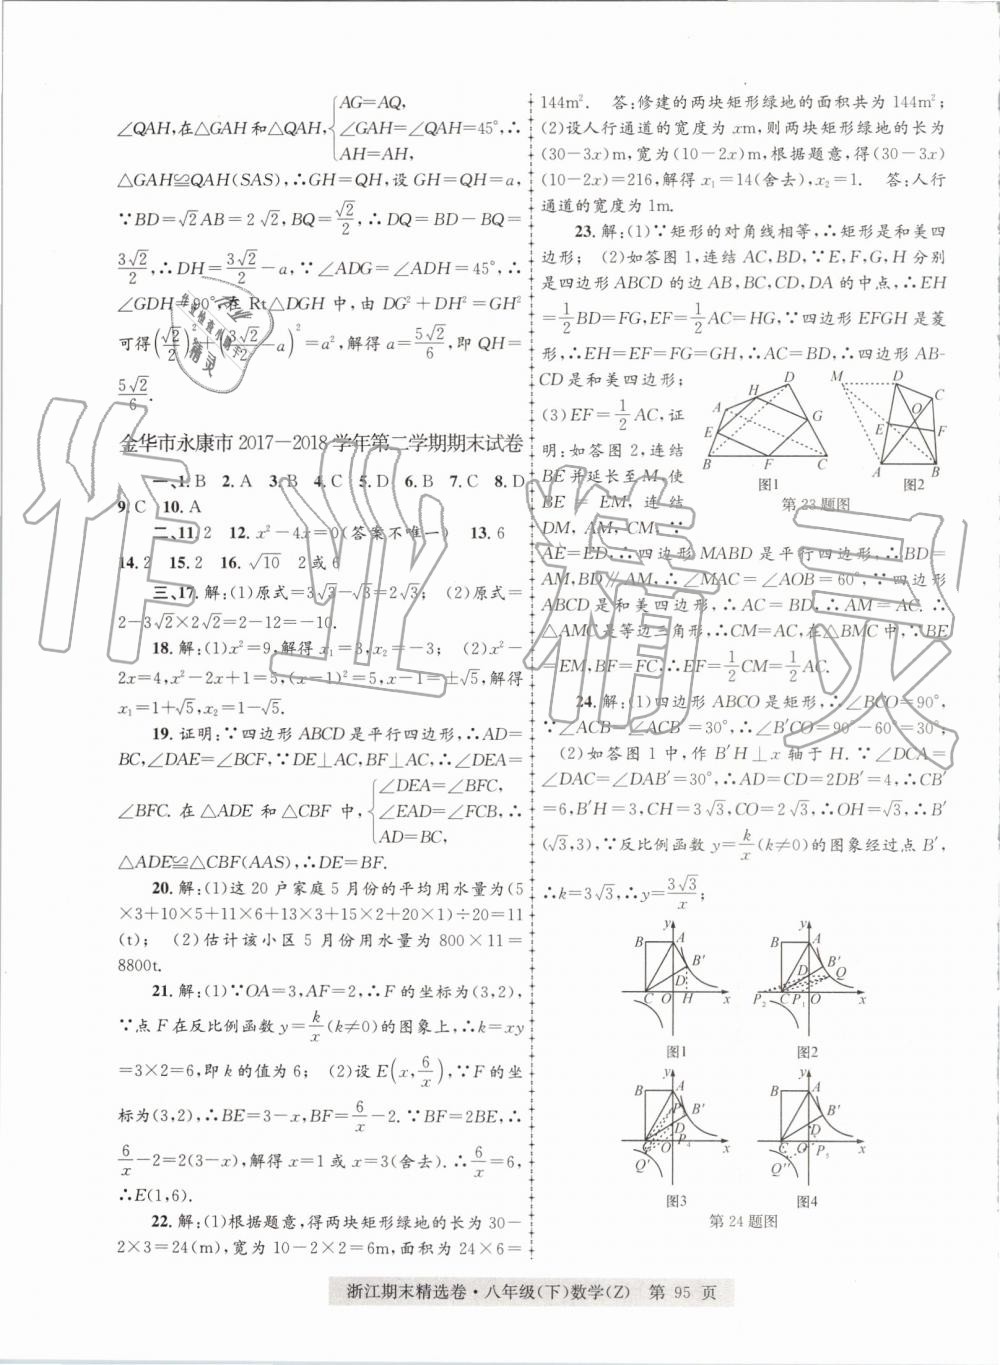 AG=AQ,
∠QAH,在△GAH和△QAH,{∠GAH=∠QAH=45°,∴
AH=AH,
△GAH≌QAH(SAS),∴GH=QH,设GH=QH=a,
∵BD=√2AB=2√2,BQ=√2/2,∴DQ=BD-BQ=
3√2/2,∴DH=3√2/2-a,∵∠ADG=∠ADH=45°,∴
∠GDH=90°,在Rt△DGH中,由DG²+DH²=GH²
可得(√2/2)²+(3√2/2-a)²=a²,解得a=5√2/6,即QH=
5√2/6.
金华市永康市2017—2018学年第二学期期末试卷
一、1.B 2.A 3.B 4.C 5.D 6.B 7.C 8.D
9.C 10.A
二、11.2 12.x²-4x=0(答案不唯一) 13.6
14.2 15.2 16.√10 2或6
三、17.解:(1)原式=3√3-√3=2√3; (2)原式=
2-3√2×2√2=2-12=-10.
18.解:(1)x²=9,解得x₁=3,x₂=-3; (2)x²-
2x=4,x²-2x+1=5,(x-1)²=5,x-1=±√5,解得
x₁=1+√5,x₂=1-√5.
19.证明:∵四边形ABCD是平行四边形,∴AD=
BC,∠DAE=∠BCF,∵DE⊥AC,BF⊥AC,∴∠DEA=
∠DEA=∠BFC,
∠BFC.在△ADE和△CBF中,{∠EAD=∠FCB,∴
AD=BC,
△ADE≌△CBF(AAS),∴DE=BF.
20.解:(1)这20户家庭5月份的平均用水量为(5
×3+10×5+11×6+13×3+15×2+20×1)÷20=11
(t); (2)估计该小区5月份用水量为800×11=
8800t.
21.解:(1)∵OA=3,AF=2,∴F的坐标为(3,2),
∵点F在反比例函数y=k/x(k≠0)的图象上,∴k=xy
=3×2=6,即k的值为6; (2)设E(x,6/x),∵F的坐
标为(3,2),∴BE=3-x,BF=6/x-2.∵BF=2BE,∴
6/x-2=2(3-x),解得x=1或x=3(舍去).∴6/x=6,
∴E(1,6).
22.解:(1)根据题意,得两块矩形绿地的长为30-
2×3=24(m),宽为10-2×2=6m,面积为24×6=
144m². 答:修建的两块矩形绿地的面积共为144m²;
(2)设人行通道的宽度为xm,则两块矩形绿地的长为
(30-3x)m,宽为(10-2x)m,根据题意,得(30-3x)
(10-2x)=216,解得x₁=14(舍去),x₂=1. 答:人行
通道的宽度为1m.
23.解:(1)∵矩形的对角线相等,∴矩形是和美四
边形; (2)如答图1,连结AC,BD,∵E,F,G,H分别
是四边形ABCD的边AB,BC,CD,DA的中点,∴EH
=1/2BD=FG,EF=1/2AC=HG,∵四边形EFGH是菱
形,∴EH=EF=FG=GH,∴AC=BD,∴四边形AB-
CD是和美四边形;
(3)EF=1/2AC,证
明:如答图2,连结
BE并延长至M,使
BE=EM,连结
DM,AM,CM,∵
AE=ED,∴四边形MABD是平行四边形,∴BD=
AM,BD∥AM,∴∠MAC=∠AOB=60°,∵四边形
ABCD是和美四边形,∴AC=BD,∴AM=AC.∴
△AMC是等边三角形,∴CM=AC,在△BMC中,∵BE
=EM,BF=FC,∴EF=1/2CM=1/2AC.
H D
A
E G
B F C
图1
M D C
O
E F
A B
图2
第23题图
24.解:(1)四边形ABCO是矩形,∴∠BCO=90°,
∵∠ACB=∠ACB′=30°,∴∠B′CO=90°-60°=30°;
(2)如答图1中,作B′H⊥x轴于H.∵∠DCA=
∠DAC=∠DAB′=30°,∴AD=CD=2DB′=4,∴CB′
=6,B′H=3,CH=3√3,CO=2√3,∴OH=√3,∴B′
(√3,3),∵反比例函数y=k/x(k≠0)的图象经过点B′,
∴k=3√3,∴y=3√3/x;
y B A B′ D C O H x
图1
y B A B′ D Q P₂ C P₁ O x
图2
y B A P₃ B′ D P₄ C O x Q′
图3
y B A B′ D C O P₅ x Q″
图4
第24题图
浙江期末精选卷·八年级(下)数学(Z) 第 95 页
作业精灵